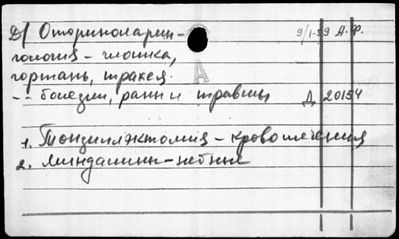 Д/ Оториноларин-
гология - глотка,
гортань, трахея.
-- болезни, раны и травмы
9/I-59 А.Ф.
А
Д 20154
1. Тонзиллэктомия - кровотечения
2. Миндалины - небные